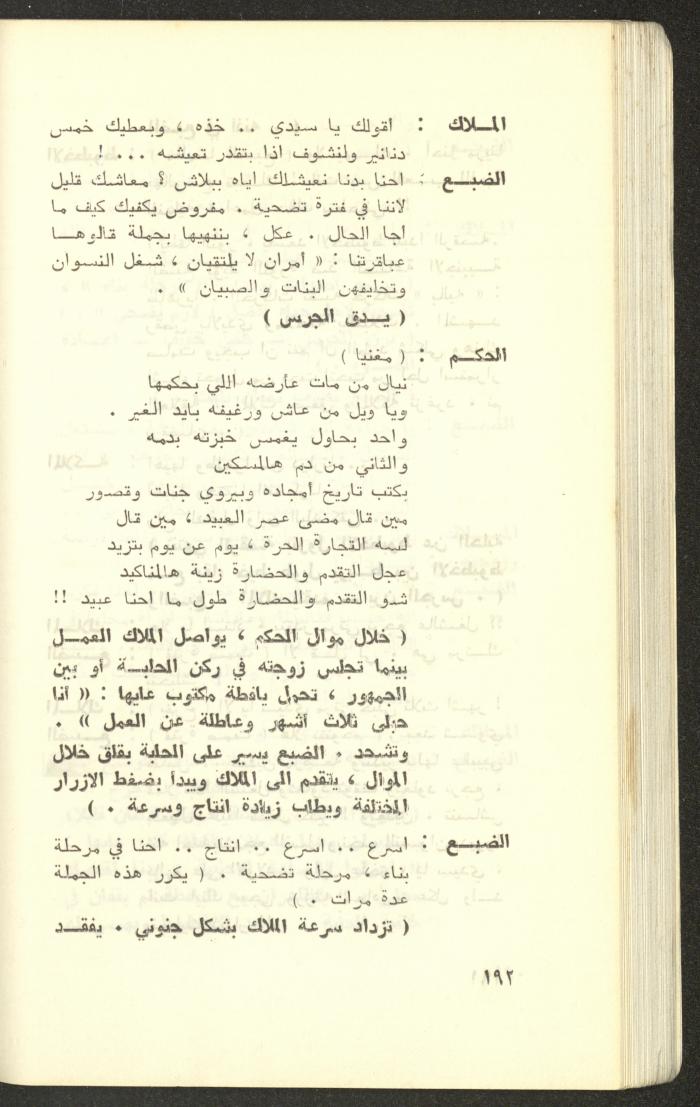 المـلاك : اقولك يا سيدي .. خذه ، وبعطيك خمس
دنانير ولنشوف اذا بتقدر تعيشه ... !
الضبـع : احنا بدنا نعيشلك اياه ببلاش ؟ معاشك قليل
لاننا في فترة تضحية . مفروض يكفيك كيف ما
اجا الحال . عكل ، بننهيها بجملة قالوهـا
عباقرتنا : « أمران لا يلتقيان ، شغل النسوان
وتخليفهن البنات والصبيان » .
( يـدق الجرس )
الحكـم : ( مغنيا )
نيال من مات عأرضه اللي بحكمها
ويا ويل من عاش ورغيفه بايد الغير .
واحد بحاول يغمس خبزته بدمه
والثاني من دم هالمسكين
بكتب تاريخ أمجاده وبيروي جنات وقصور
مين قال مضى عصر العبيد ، مين قال
لسه التجارة الحرة ، يوم عن يوم بتزيد
عجل التقدم والحضارة زينة هالمناكيد
شدو التقدم والحضارة طول ما احنا عبيد !!
( خلال موال الحكم ، يواصل الملاك العمـل
بينما تجلس زوجته في ركن الحلبـة أو بين
الجمهور ، تحمل يافطة مكتوب عليها : « أنا
حبلى ثلاث أشهر وعاطلة عن العمل » .
وتشحد . الضبع يسير على الحلبة بقلق خلال
الموال ، يتقدم الى الملاك ويبدأ بضغط الازرار
المختلفة ويطلب زيادة انتاج وسرعة . )
الضبـع : اسرع .. اسرع .. انتاج .. احنا في مرحلة
بناء ، مرحلة تضحية . ( يكرر هذه الجملة
عدة مرات . )
( تزداد سرعة الملاك بشكل جنوني . يفقـد
١٩٢